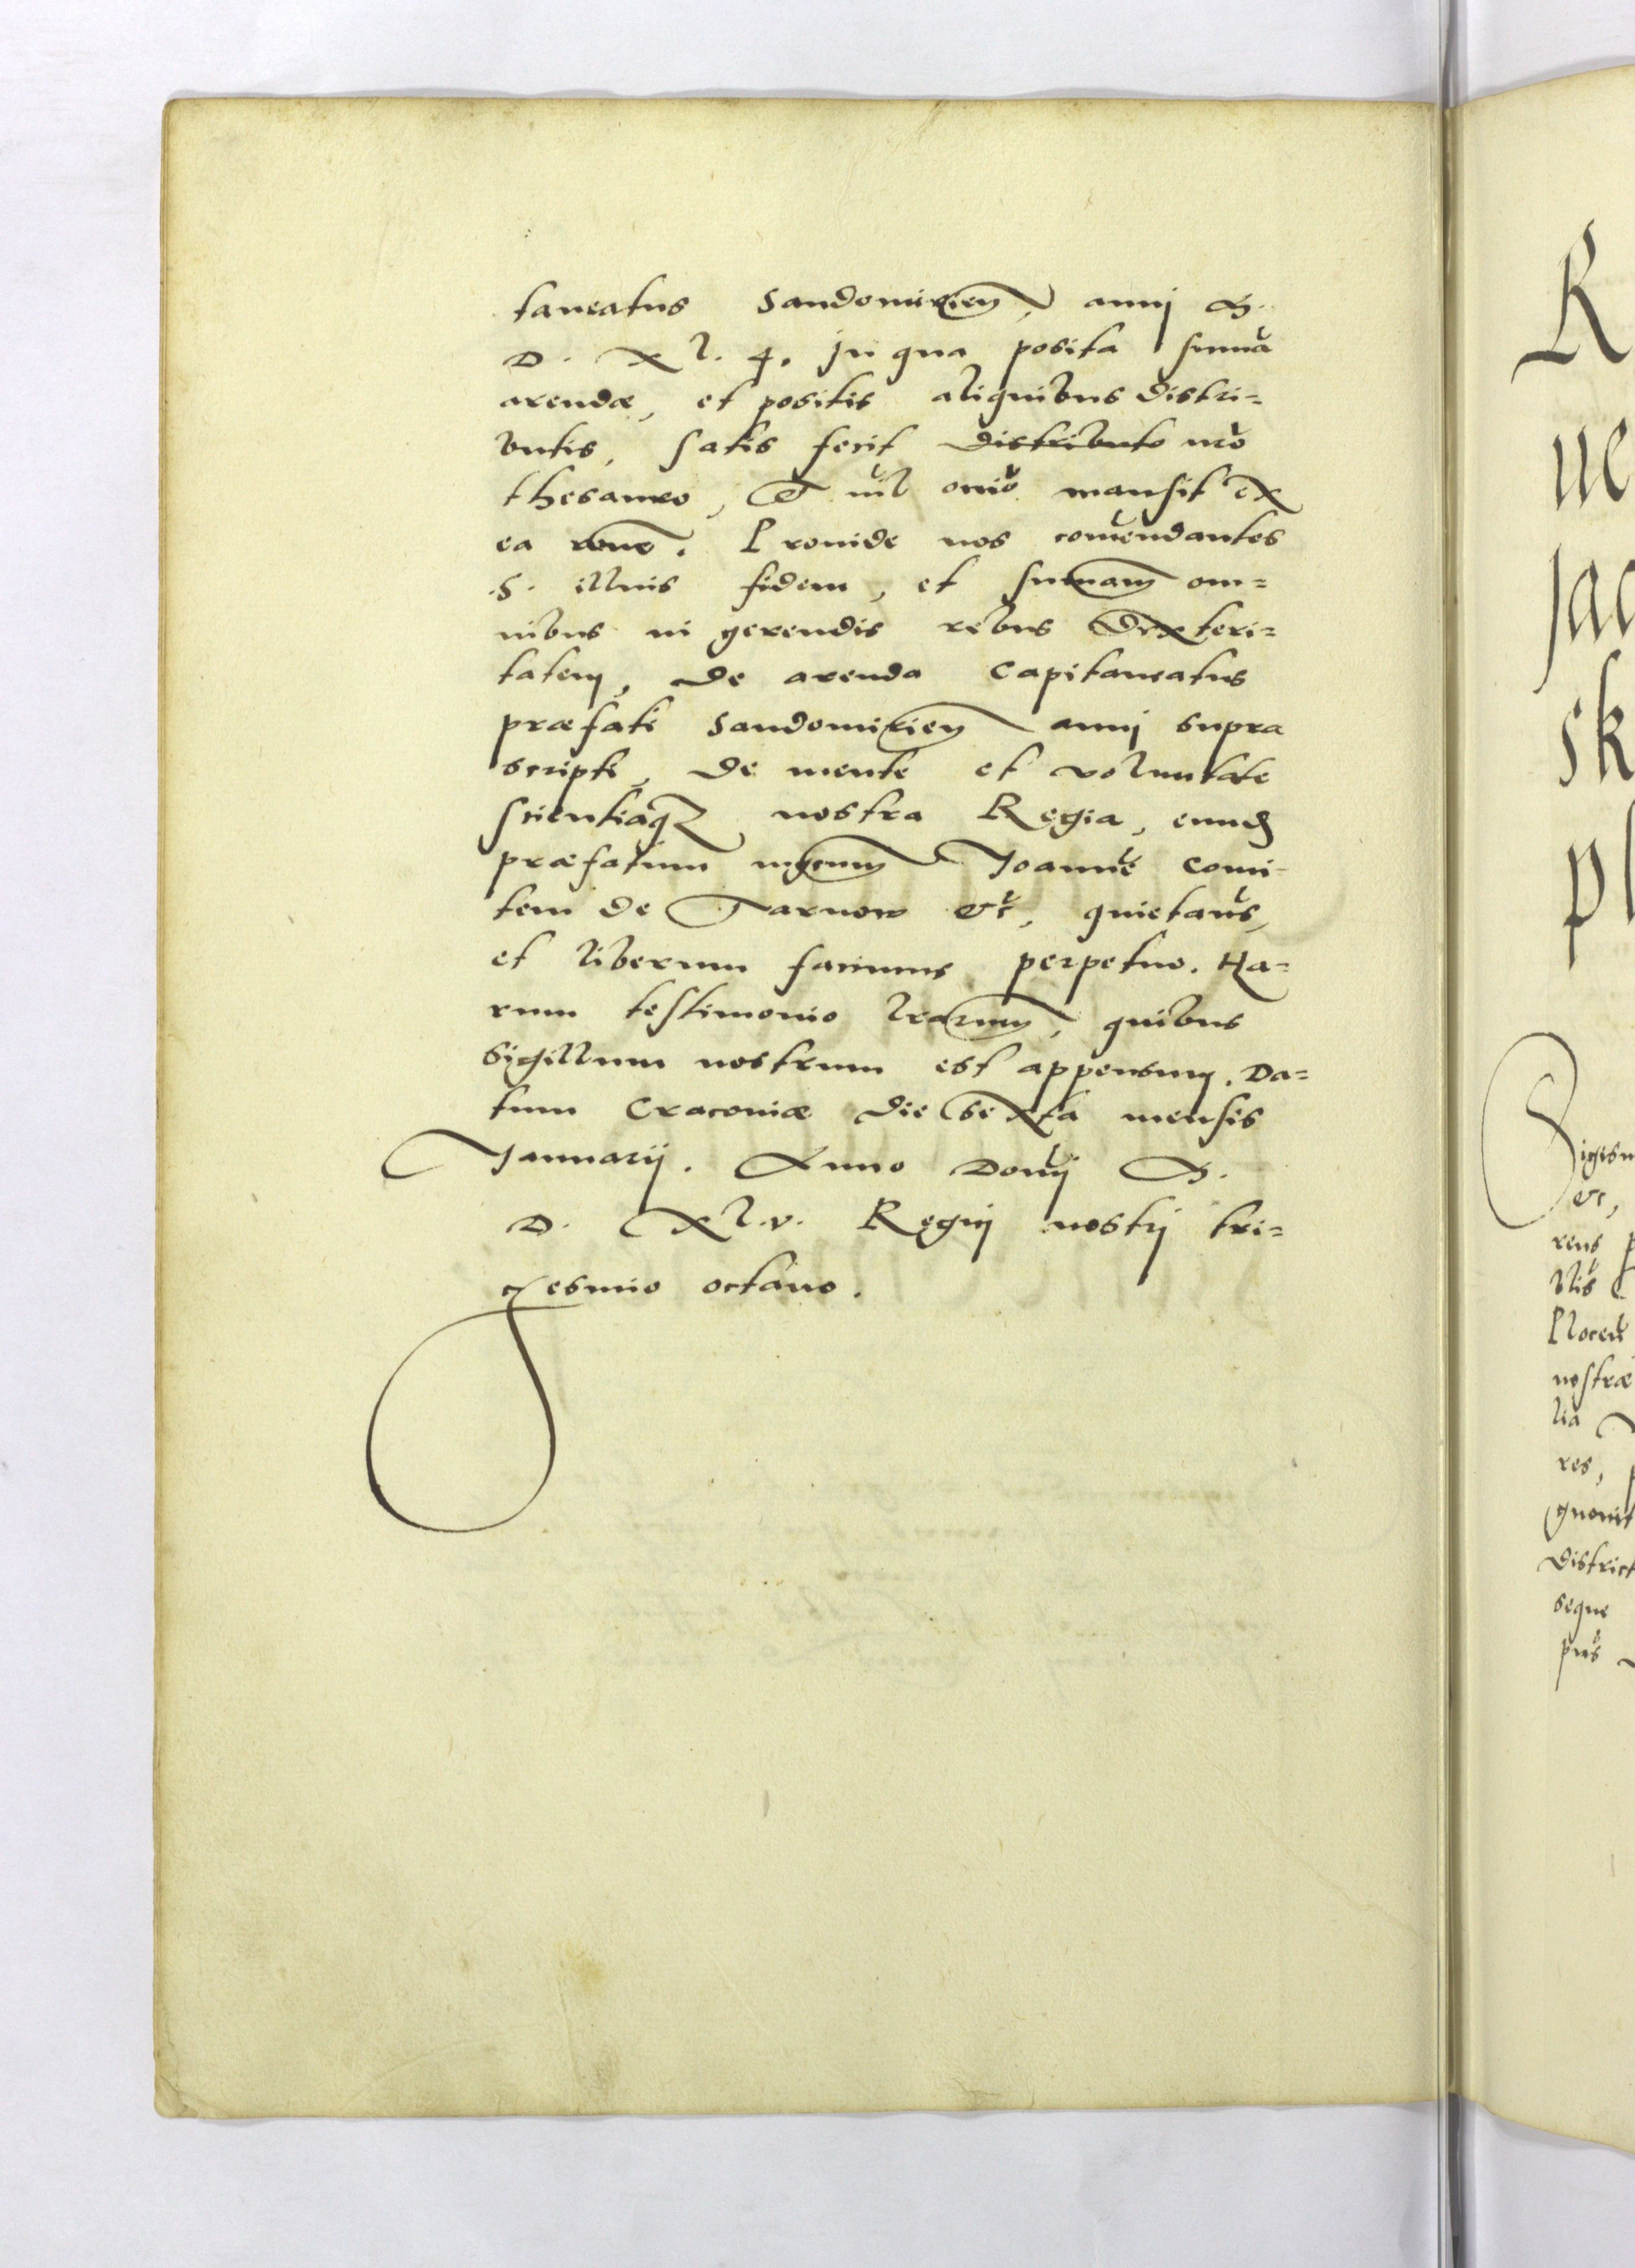 taneatus Sandomirien, anni M.
D. Xl. 4. In qua posita suma
arendæ, et positis aliquibus distri=
butis, satis fecit distributo nro
thesauro, Et nil omno mansit ex
ea rone. Proinde nos comendantes
S. illius fidem, et sumam om=
nibus in gerendis rebus dexteri=
tatem, de arenda Capitaneatus
præfati Sandomirien anni supra
scripti, de mente et voluntate
scientiaq3 nostra Regia, eund
præfatum mgcum Joanne Comi-
tem de Tarnow etc, quietaus,
et liberum facimus perpetuo. Ha=
rum testimonio lrarum, quibus
Sigillum nostrum est appensum. Da=
tum Cracoviæ die sexta mensis
Januarij. Anno Domi M.
D. Xl.v. Regni nostri tri=
gesimo octavo.
R
ne
jac
sk
pl
Sigism
etc,
rens
Plocen
nostræ
lia
res,
district
seque